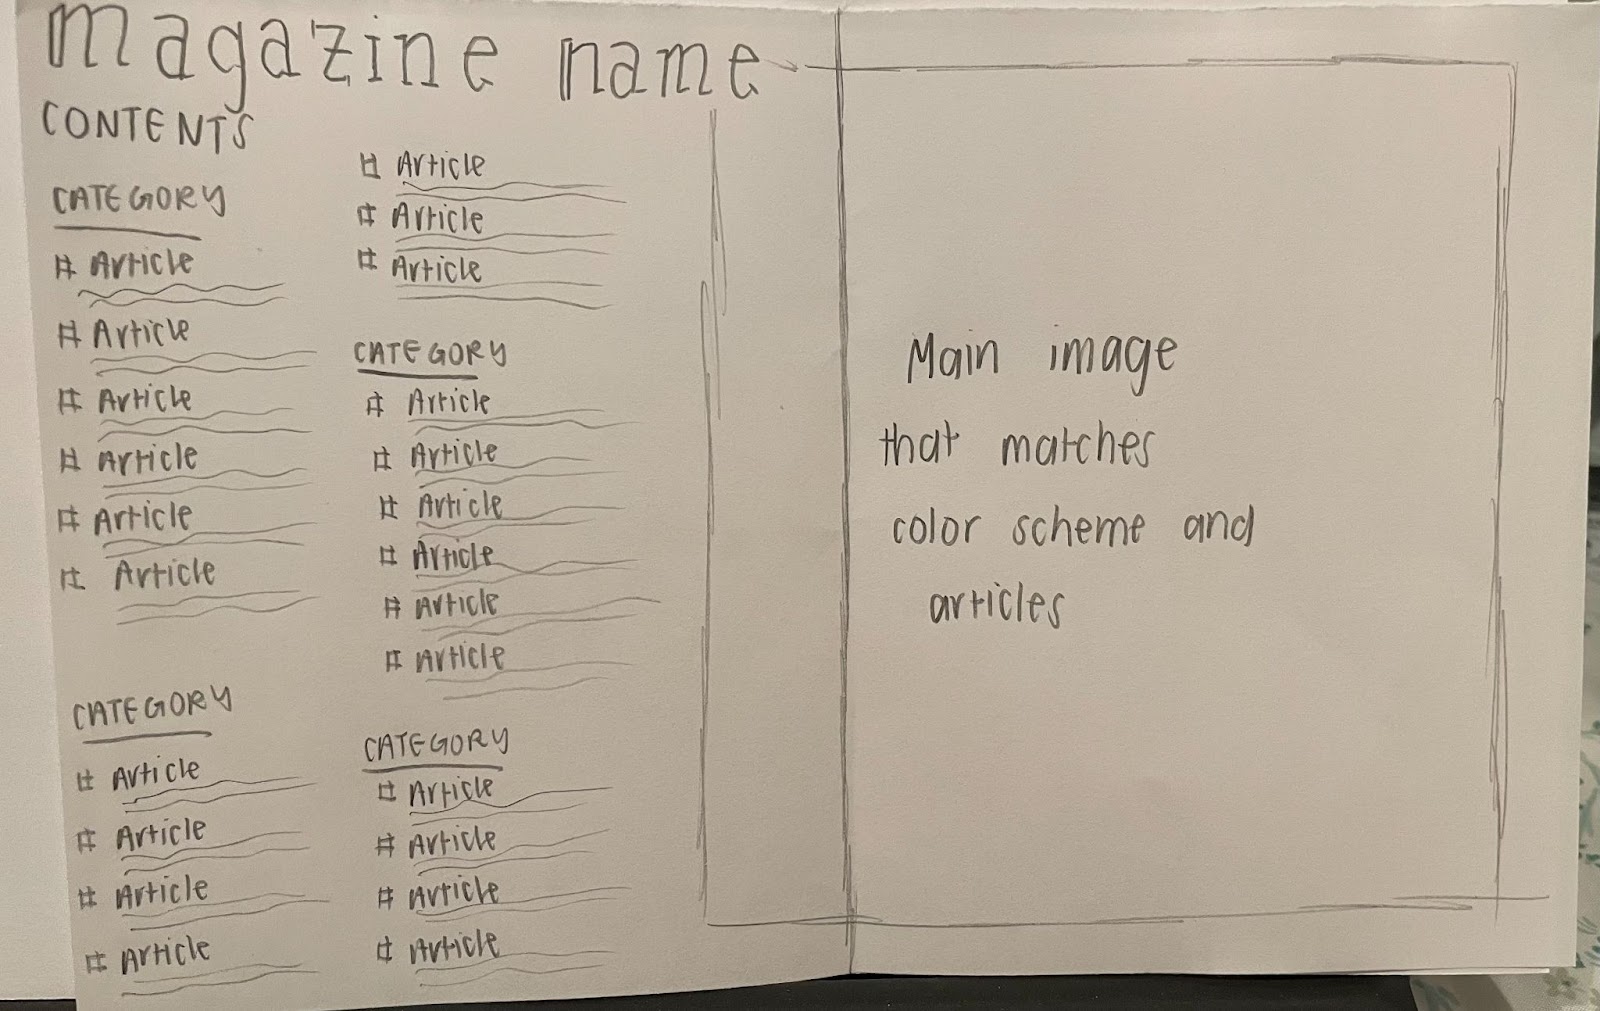 magazine name
CONTENTS
CATEGORY
# Article
# Article
# Article
# Article
# Article
# Article
CATEGORY
# Article
# Article
# Article
# Article
# Article
# Article
# Article
CATEGORY
# Article
# Article
# Article
# Article
# Article
# Article
CATEGORY
# Article
# Article
# Article
# Article
Main image
that matches
color scheme and
articles